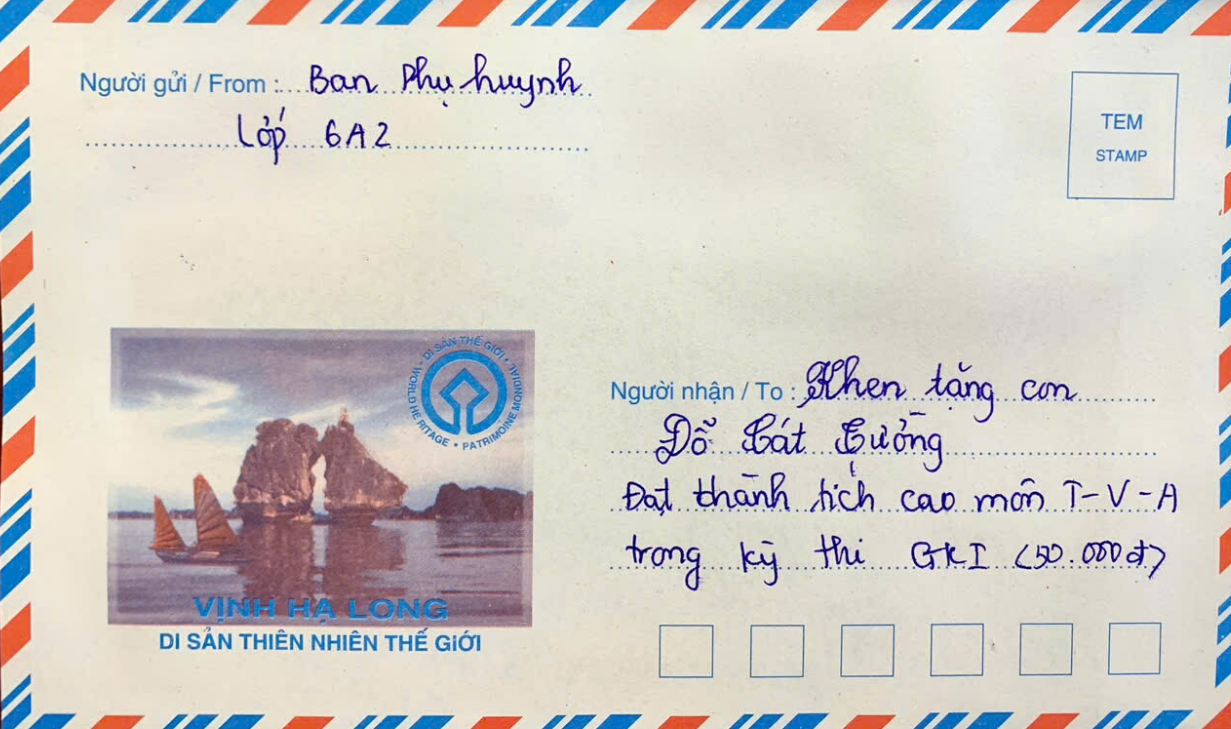 Người gửi / From : Ban Phụ huynh
Lớp 6A2
TEM
STAMP
DI SẢN THẾ GIỚI • WORLD HERITAGE • PATRIMOINE MONDIAL •
Người nhận / To : Khen tặng con
Đỗ Cát Tưởng
Đạt thành tích cao môn T-V-A
trong kỳ thi GKI (50.000đ)
VỊNH HẠ LONG
DI SẢN THIÊN NHIÊN THẾ GIỚI